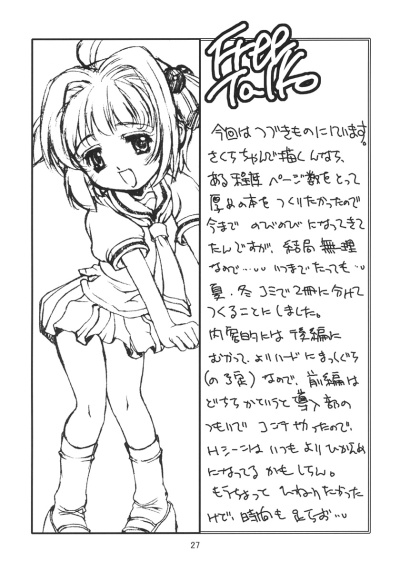 Free
Talk
今回はつづきものにしています。
さくらちゃんで描くんなら、
ある程度ページ数をとって
厚めの本をつくりたかったので
今までのびのびになってきて
たんですが、結局無理
なので…いつまでたっても…
夏、冬コミで2冊に分けて
つくることにしました。
内容的には後編に
むかって、よりハードにまっしぐら
(の予定)なので、前編は
どちらかというと導入部の
つもいでコンテやったので、
Hシーンはいつもよりひかえめ
になってるかもしらん。
もうちょっとひねりたかった
けど、時間も足らず…
27